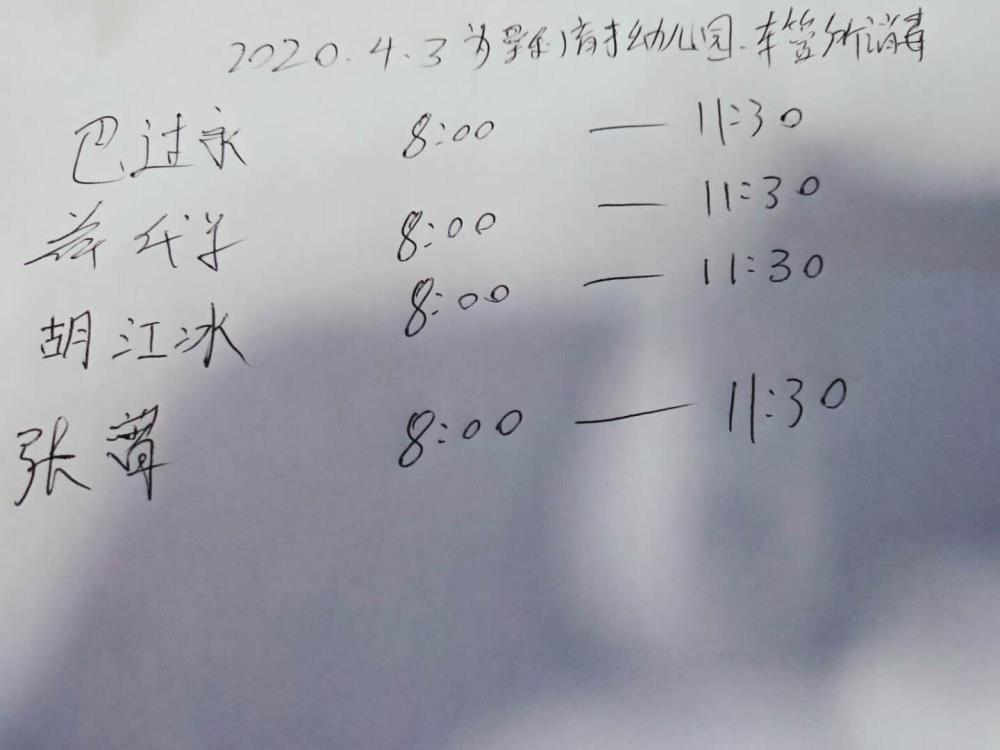 2020.4.3为育才幼儿园.车管所消毒
巴过永 8:00 — 11:30
8:00 — 11:30
胡江冰 8:00 — 11:30
张 8:00 — 11:30